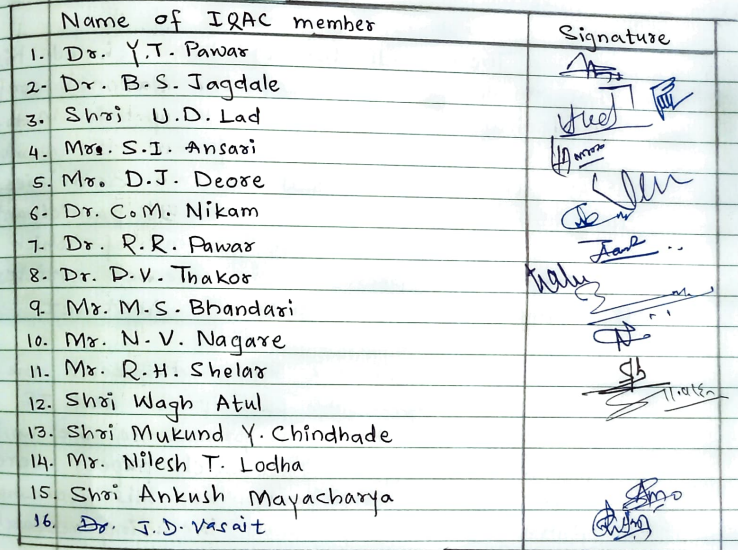 Name of IQAC member Signature
1. Dr. Y.T. Pawar
2- Dr. B.S. Jagdale
3. Shri U.D. Lad
4. Mr. S.I. Ansari
5. Mr. D.J. Deore
6- Dr. C.M. Nikam
7- Dr. R.R. Pawar
8- Dr. D.V. Thakor
9. Mr. M.S. Bhandari
10. Mr. N.V. Nagare
11. Mr. R.H. Shelar
12. Shri Wagh Atul
13. Shri Mukund Y. Chindhade
14. Mr. Nilesh T. Lodha
15. Shri Ankush Mayacharya
16. Dr. J.D. Vasait